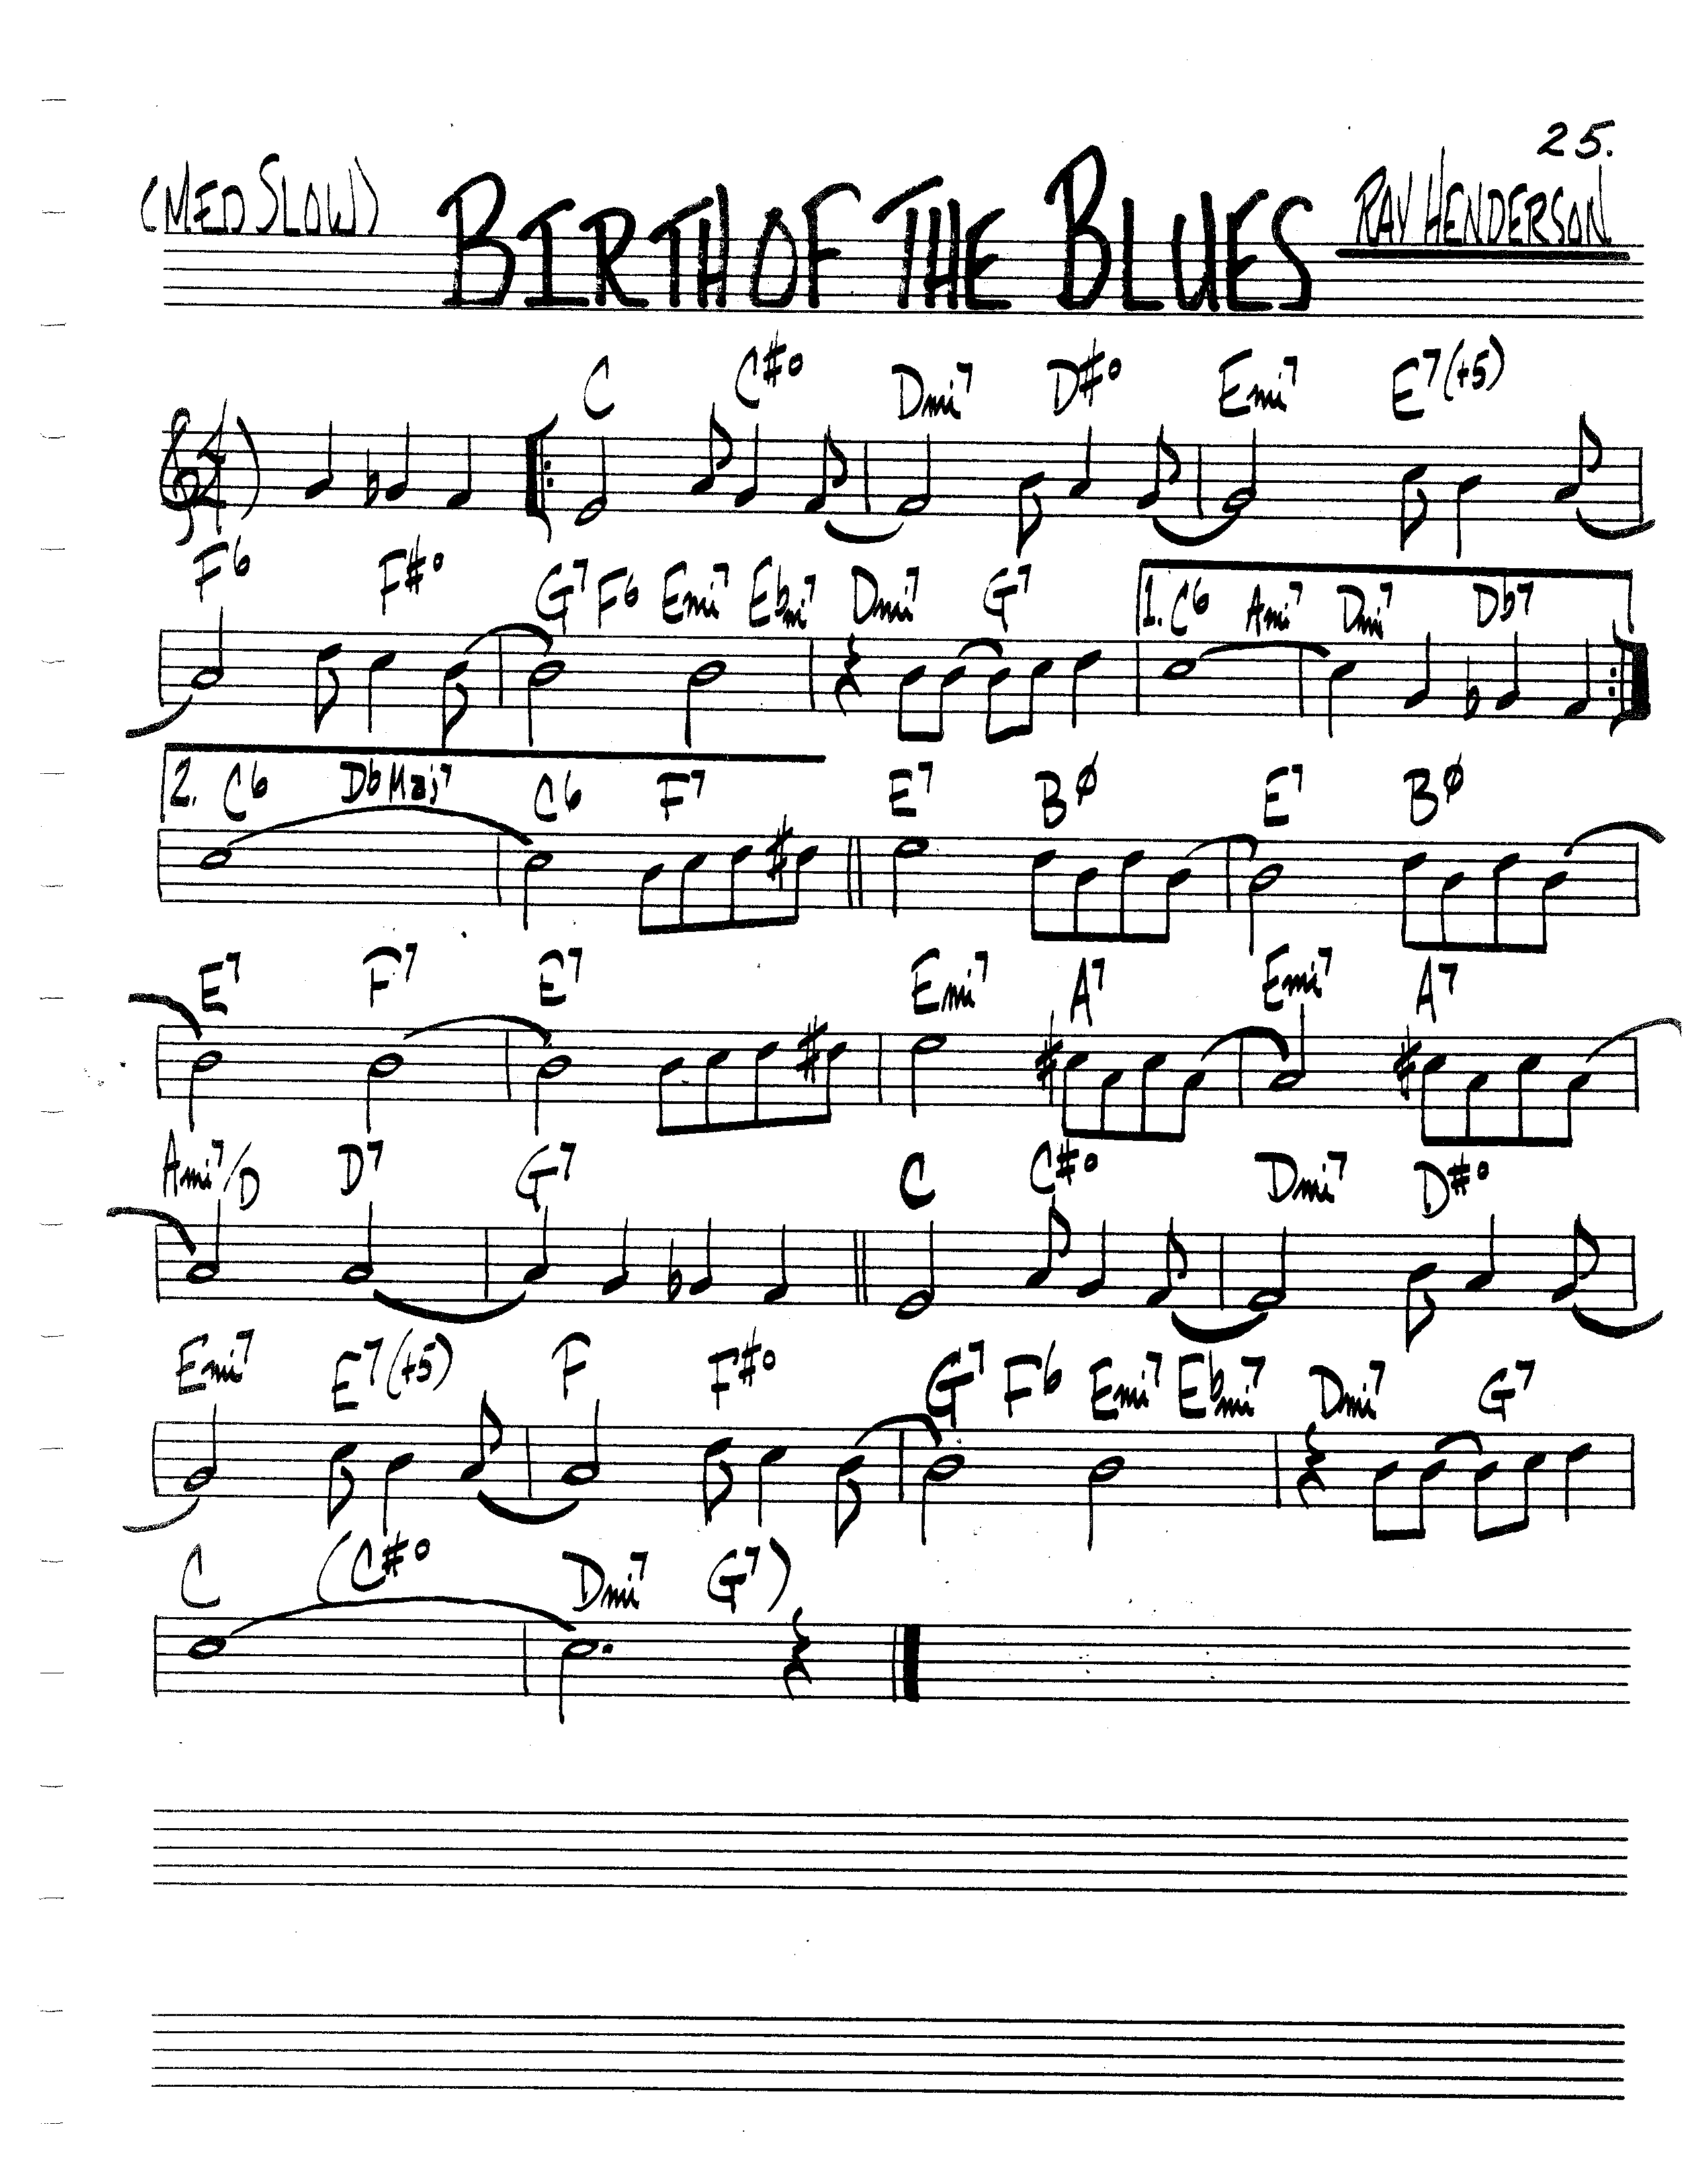 25.
(MED SLOW) BIRTH OF THE BLUES RAY HENDERSON
C C#o Dmi7 D#o Emi7 E7(+5)
F6 F#o G7 F6 Emi7 Ebmi7 Dmi7 G7 1. C6 Ami7 Dmi7 Db7
2. C6 DbMaj7 C6 F7 E7 Bø E7 Bø
E7 F7 E7 Emi7 A7 Emi7 A7
Ami7/D D7 G7 C C#o Dmi7 D#o
Emi7 E7(+5) F F#o G7 F6 Emi7 Ebmi7 Dmi7 G7
C (C#o Dmi7 G7)